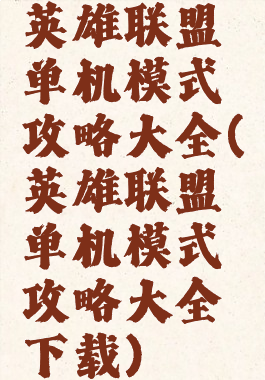 英雄联盟
单机模式
攻略大全(
英雄联盟
单机模式
攻略大全
下载)